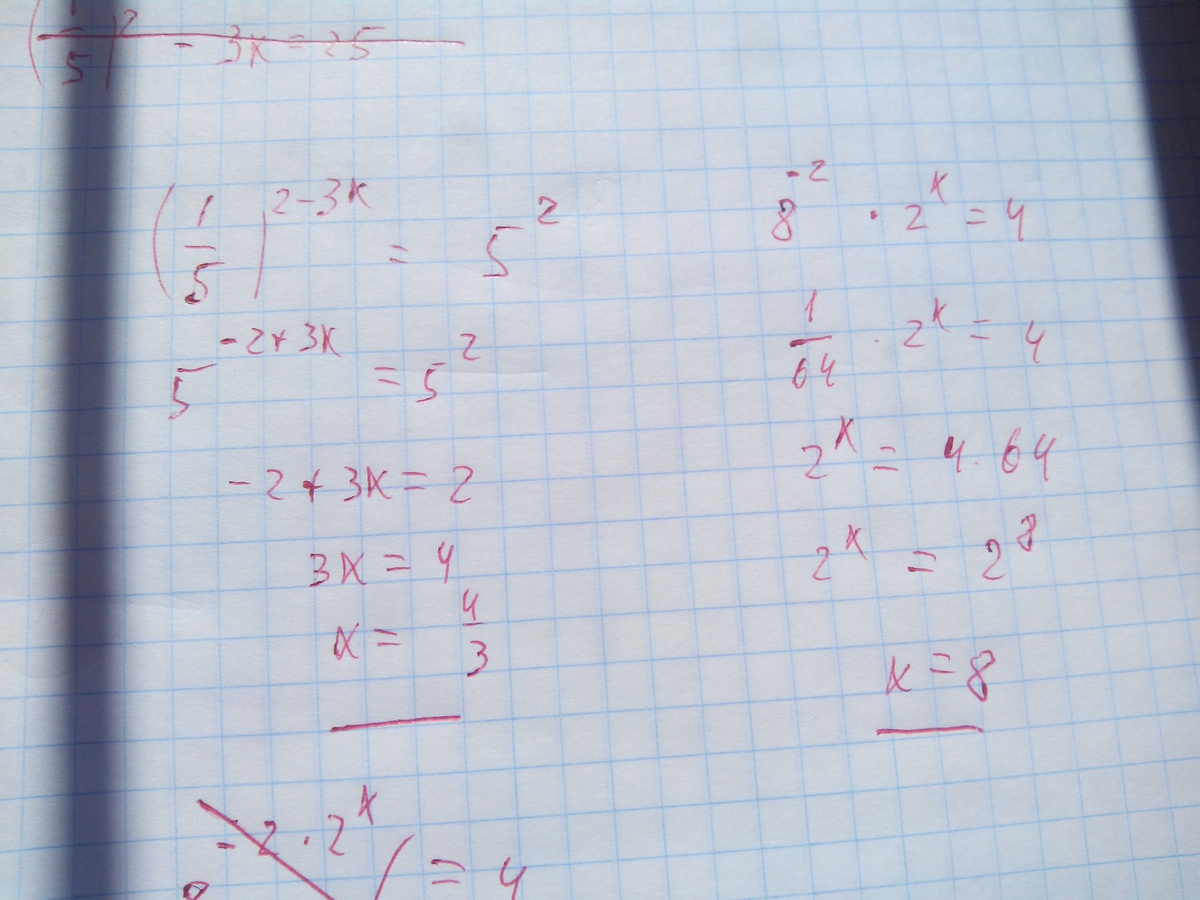 (1/5)² - 3x = 25
(1/5)^(2-3x) = 5²
5^(-2+3x) = 5²
-2 + 3x = 2
3x = 4
x = 4/3
8⁻² · 2ˣ = 4
1/64 · 2ˣ = 4
2ˣ = 4 · 64
2ˣ = 2⁸
x = 8
8^(-2 · 2^x) = 4